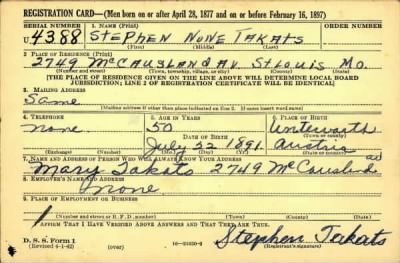 REGISTRATION CARD—(Men born on or after April 28, 1877 and on or before February 16, 1897)
SERIAL NUMBER 1. NAME (Print) ORDER NUMBER
U 4388 STEPHEN NONE TAKATS
(First) (Middle) (Last)
2. PLACE OF RESIDENCE (Print)
2749 McCAUSLAND AV. ST LOUIS MO.
(Number and street) (Town, township, village, or city) (County) (State)
[THE PLACE OF RESIDENCE GIVEN ON THE LINE ABOVE WILL DETERMINE LOCAL BOARD
JURISDICTION; LINE 2 OF REGISTRATION CERTIFICATE WILL BE IDENTICAL]
3. MAILING ADDRESS
Same
[Mailing address if other than place indicated on line 2. If same insert word same]
4. TELEPHONE 5. AGE IN YEARS 6. PLACE OF BIRTH
none 50
DATE OF BIRTH (Town or county)
July 22 1891 Austria
(Exchange) (Number) (Mo.) (Day) (Yr.) (State or country)
7. NAME AND ADDRESS OF PERSON WHO WILL ALWAYS KNOW YOUR ADDRESS
Mary Takats 2749 McCausland av
8. EMPLOYER'S NAME AND ADDRESS
none
9. PLACE OF EMPLOYMENT OR BUSINESS
(Number and street or R. F. D. number) (Town) (County) (State)
I AFFIRM THAT I HAVE VERIFIED ABOVE ANSWERS AND THAT THEY ARE TRUE.
D. S. S. Form 1
(Revised 4-1-42) (over) Stephen Takats
(Registrant's signature)